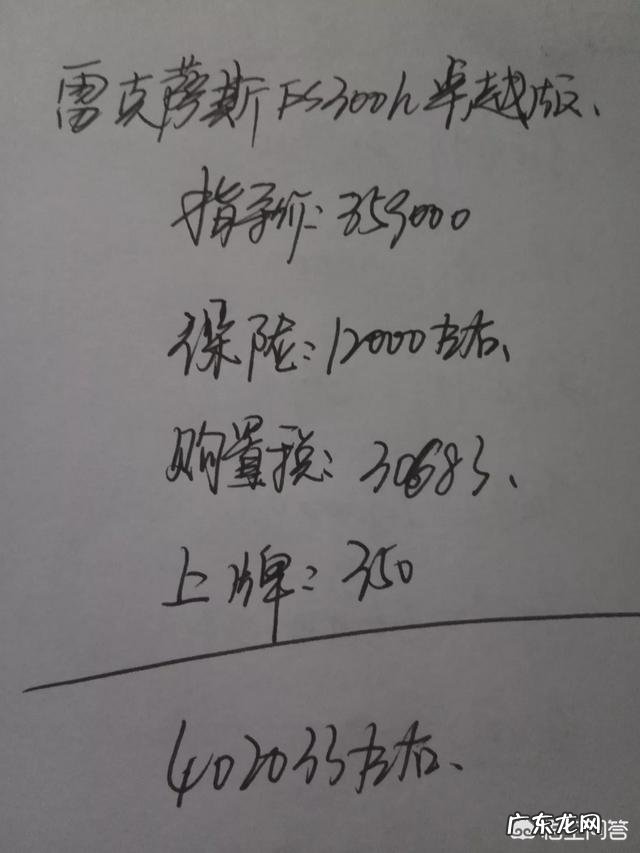 雷克萨斯ES300h卓越版、
指导价：359000
保险：12000左右、
购置税：30683、
上牌：350
402033左右、
悟空问答
广东龙网